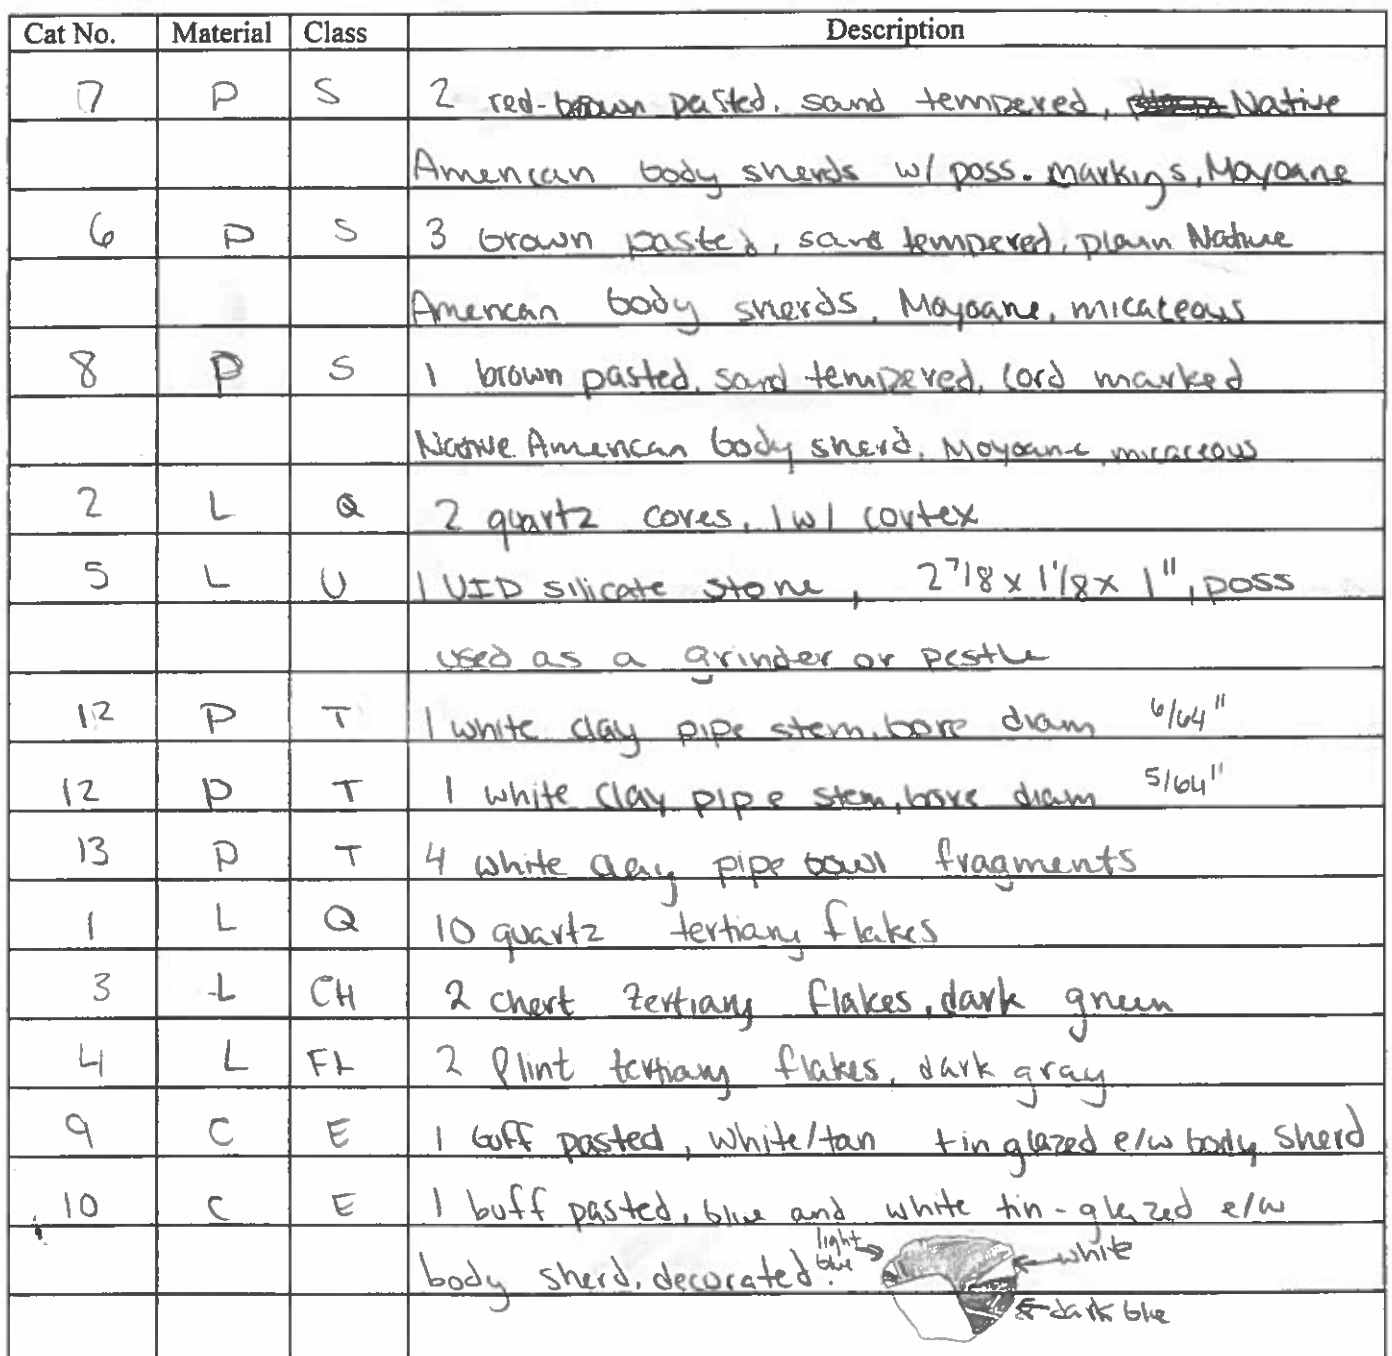 Cat No. Material Class Description
7 P S 2 red-brown pasted, sand tempered, Native
American body sherds w/ poss. markings, Moyoane
6 P S 3 brown pasted, sand tempered, plain Native
American body sherds, Moyoane, micaceous
8 P S 1 brown pasted, sand tempered, cord marked
Native American body sherd, Moyoane, micaceous
2 L Q 2 quartz cores, 1 w/ cortex
5 L U 1 UID silicate stone, 2 7/8 x 1 1/8 x 1", poss
used as a grinder or pestle
12 P T 1 white clay pipe stem, bore diam 6/64"
12 P T 1 white clay pipe stem, bore diam 5/64"
13 P T 4 white clay pipe bowl fragments
1 L Q 10 quartz tertiary flakes
3 L CH 2 chert tertiary flakes, dark green
4 L FL 2 flint tertiary flakes, dark gray
9 C E 1 buff pasted, white/tan tin glazed e/w body sherd
10 C E 1 buff pasted, blue and white tin-glazed e/w
body sherd, decorated. light blue white
dark blue